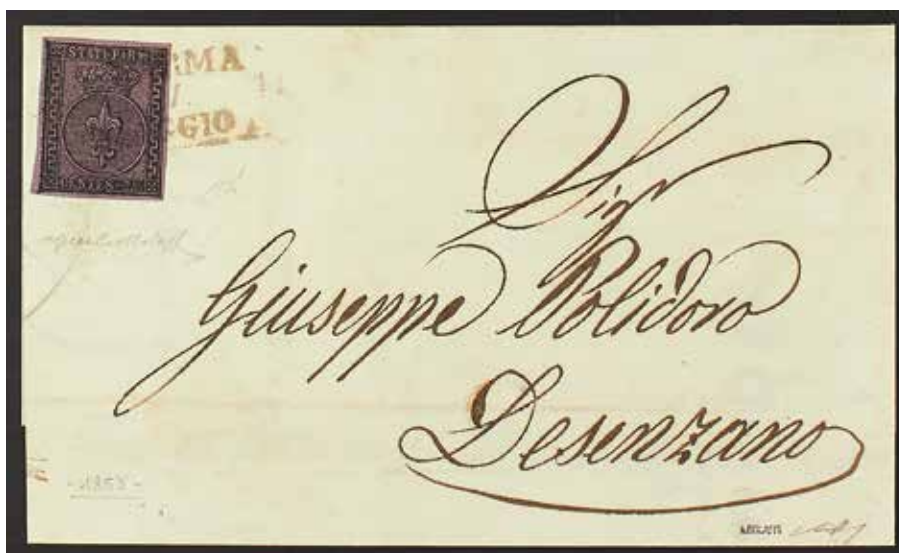 STATI PARM.
RMA
GGIO
CENTES
Sigr
Giuseppe Polidoro
Desenzano
- 1853 -